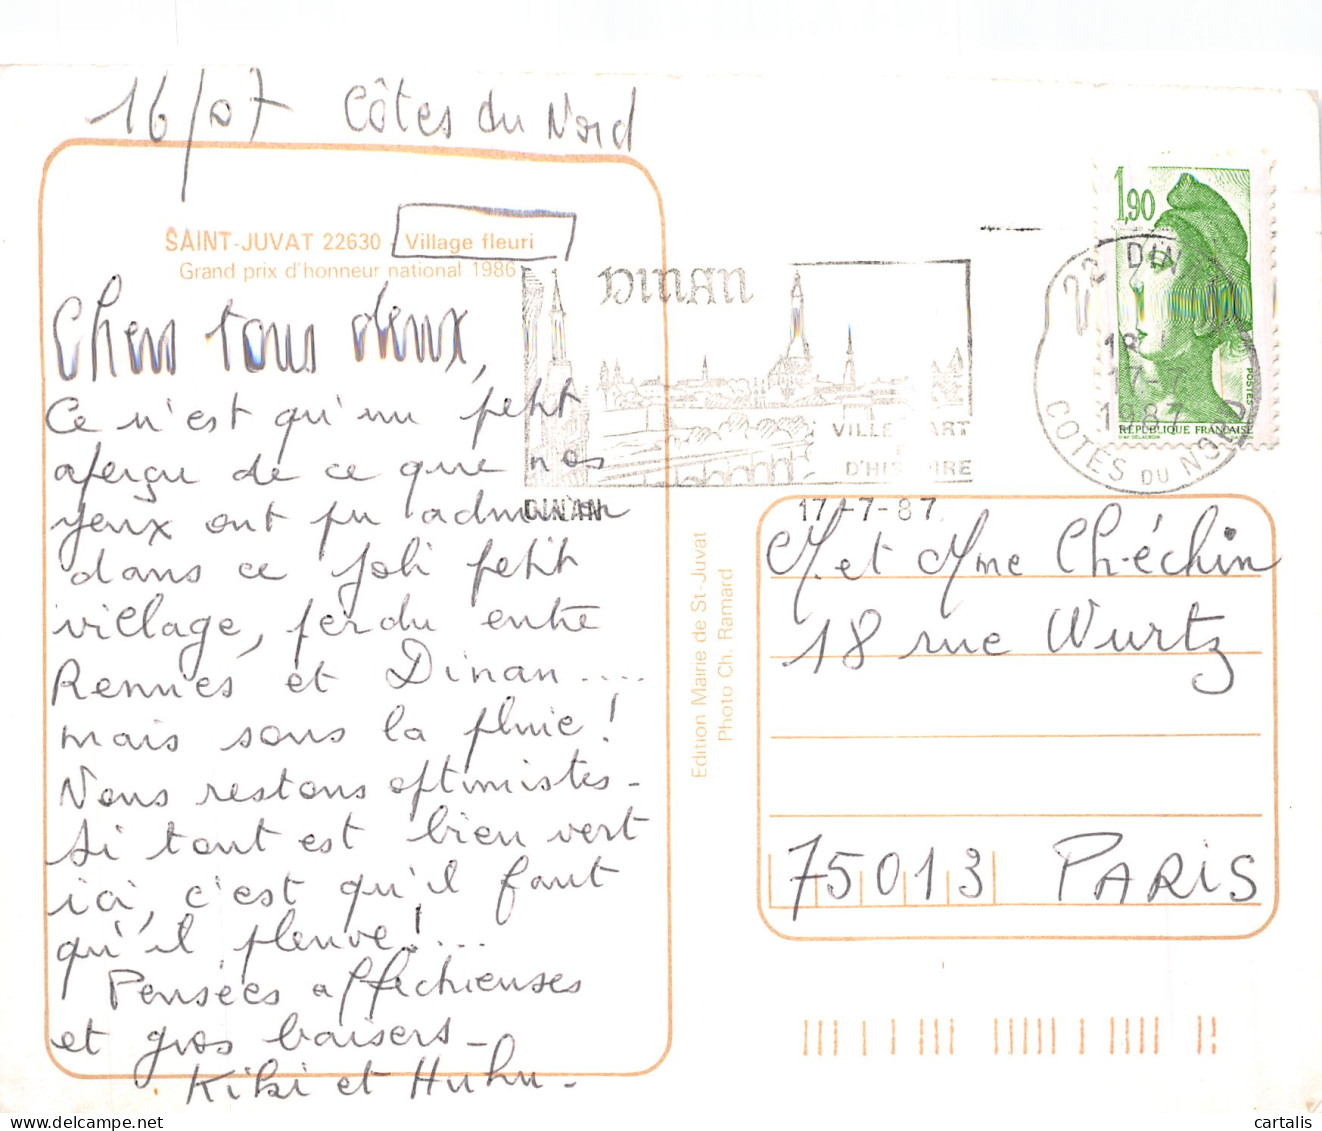 16/07 Côtes du Nord
SAINT-JUVAT 22630 - Village fleuri
Grand prix d'honneur national 1986
Chers tous deux,
Ce n'est qu'un petit
aperçu de ce que nos
yeux ont pu admirer
dans ce joli petit
village, perdu entre
Rennes et Dinan .....
mais sous la pluie !
Nous restons optimistes -
Si tout est bien vert
ici, c'est qu'il faut
qu'il pleuve ! ...
Pensées affectueuses
et gros baisers -
Kiki et Huhu -
DINAN
VILLE D'ART
D'HISTOIRE
DINAN
17-7-87
22 DINAN
18
17-7
1987
COTES DU NORD
1,90
POSTES
RÉPUBLIQUE FRANÇAISE
Edition Mairie de St-Juvat
Photo Ch. Ramard
M. et Mme Ch-échin
18 rue Wurtz
75013 PARIS
© cartalis